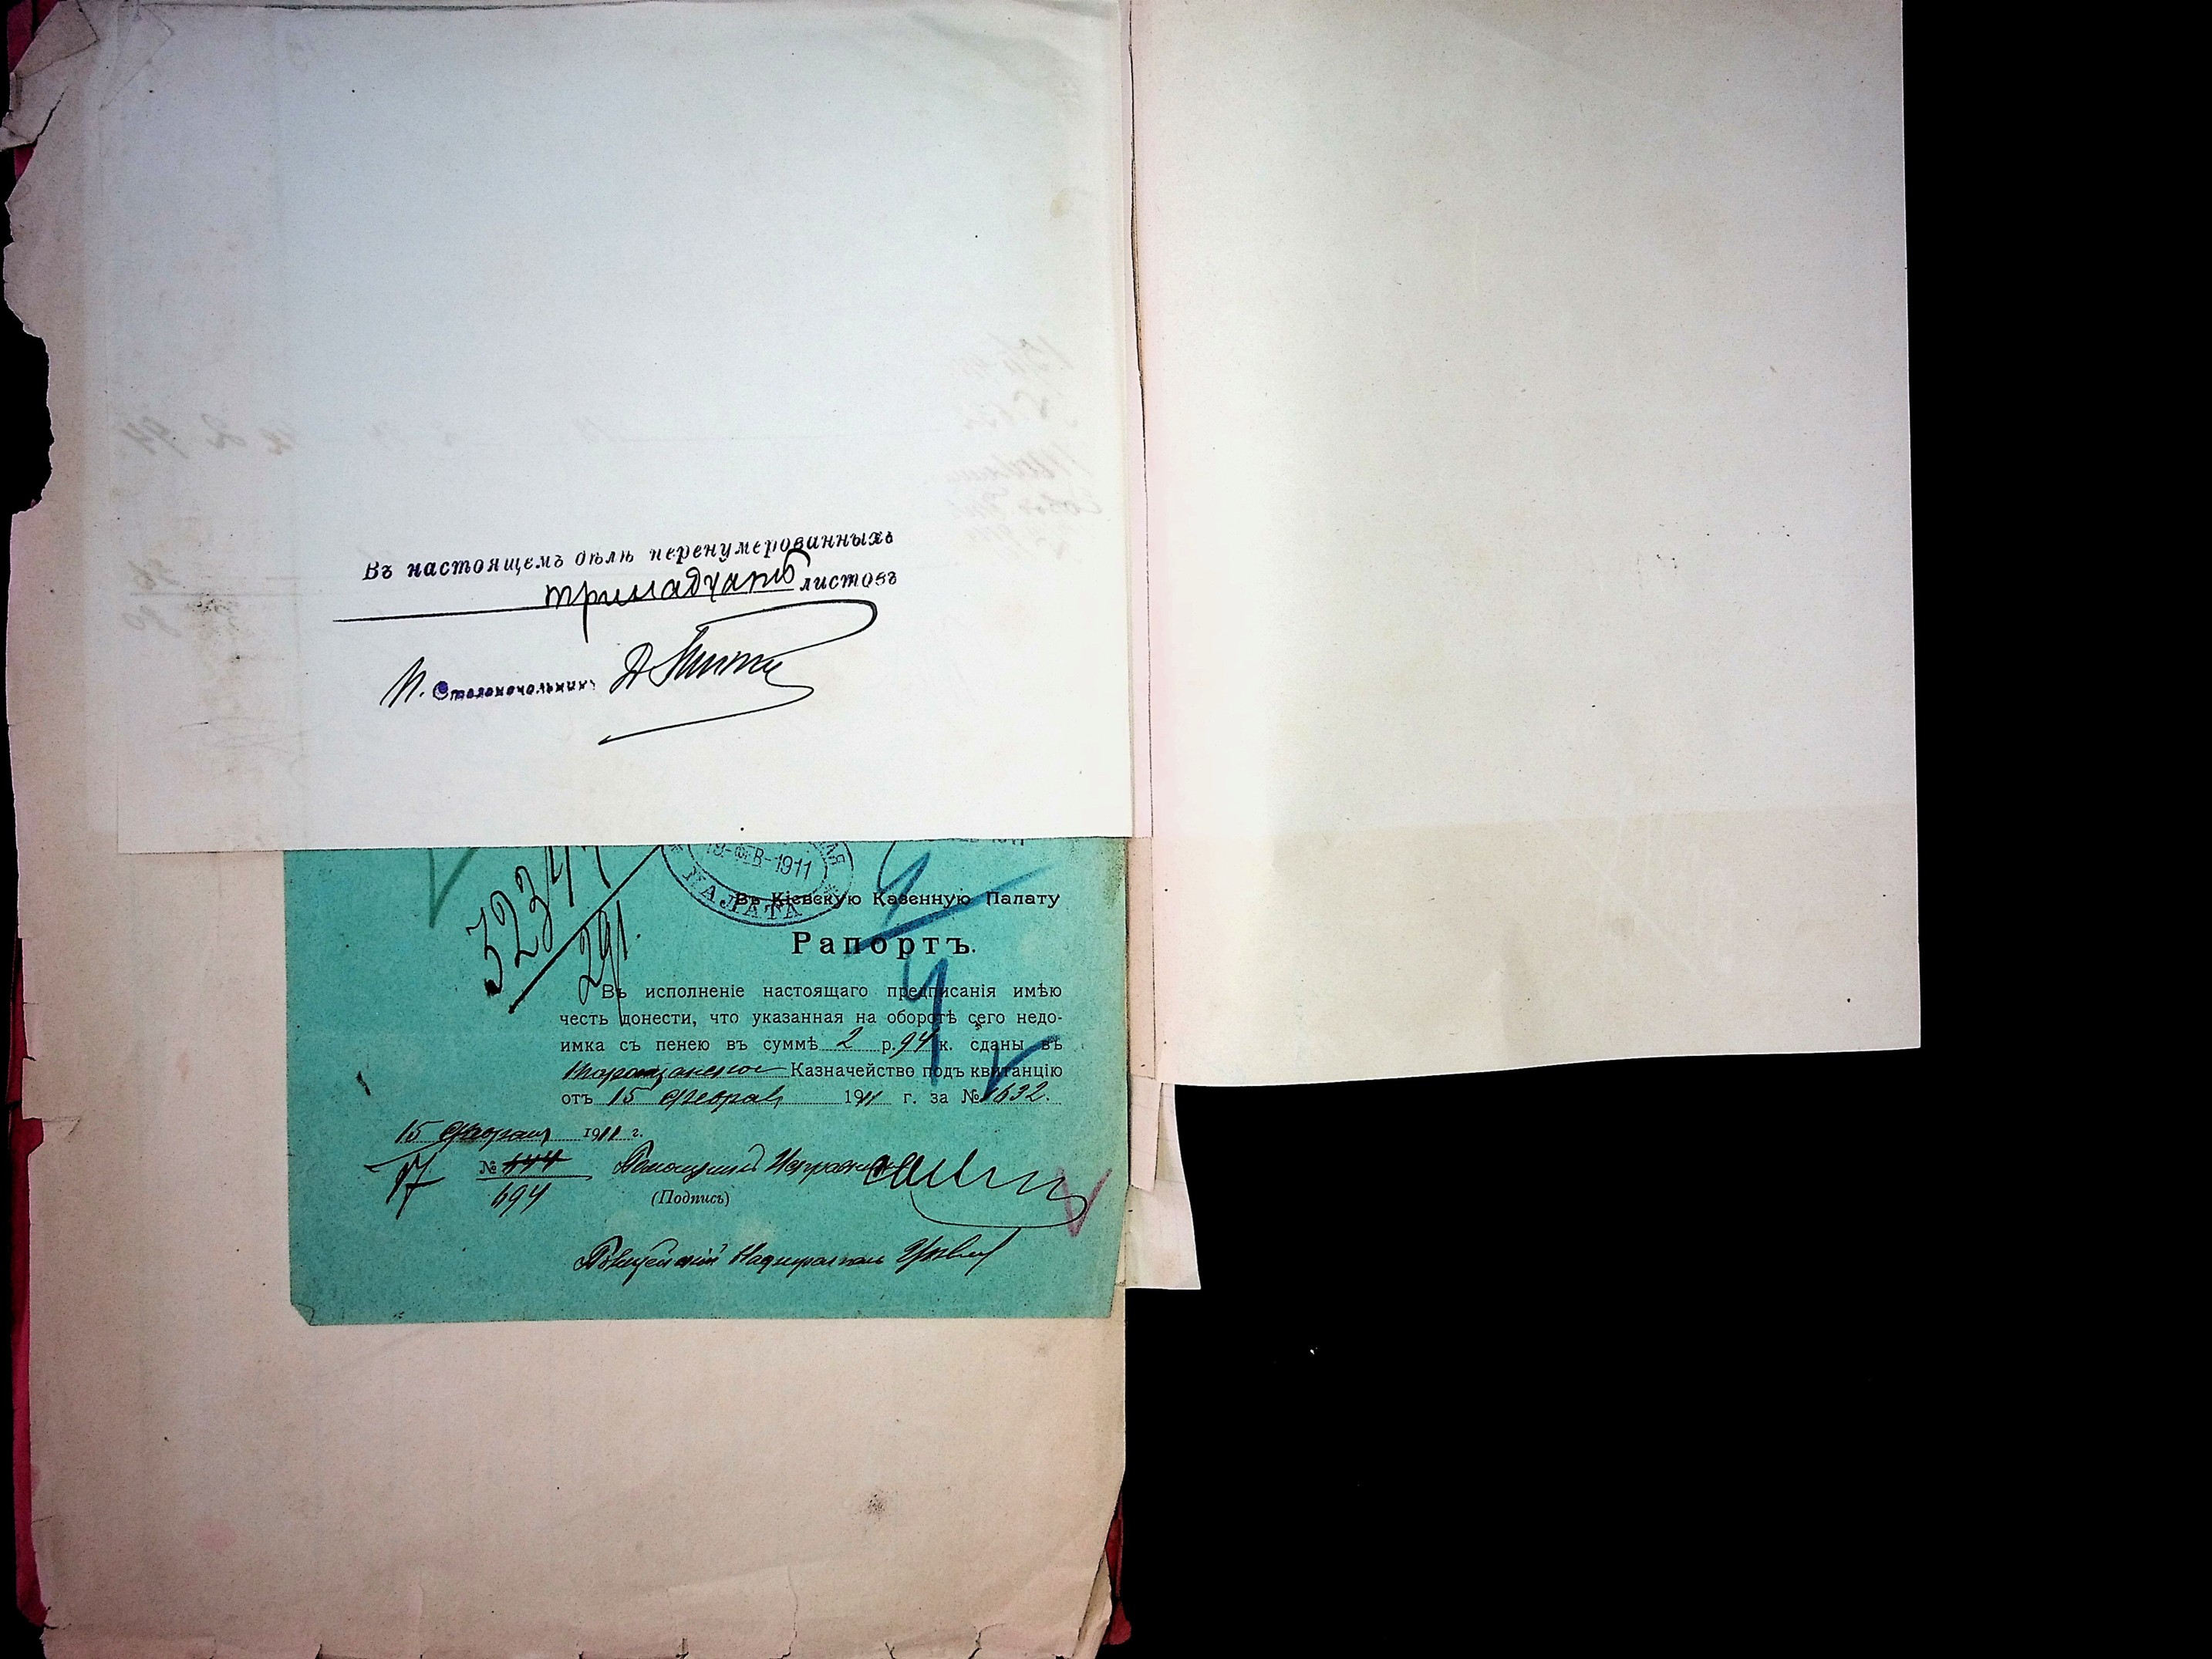 Въ настоящемъ дѣлѣ перенумерованныхъ
тринадцать листовъ
И. Столоначальникъ
32347
291.
18-ФЕВ-1911
ПАЛАТА
Въ Кіевскую Казенную Палату
Рапортъ.
Въ исполненіе настоящаго предписанія имѣю
честь донести, что указанная на оборотѣ сего недо-
имка съ пенею въ суммѣ 2 р. 94 к. сданы въ
Таращанское Казначейство подъ квитанцію
отъ 15 Феврал 1911 г. за № 1632.
15 Февраля 1911 г.
17 № 444
694
Помощникъ Исправника
(Подпись)
Полицейскій Надзиратель